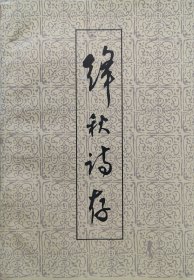 绛秋诗存